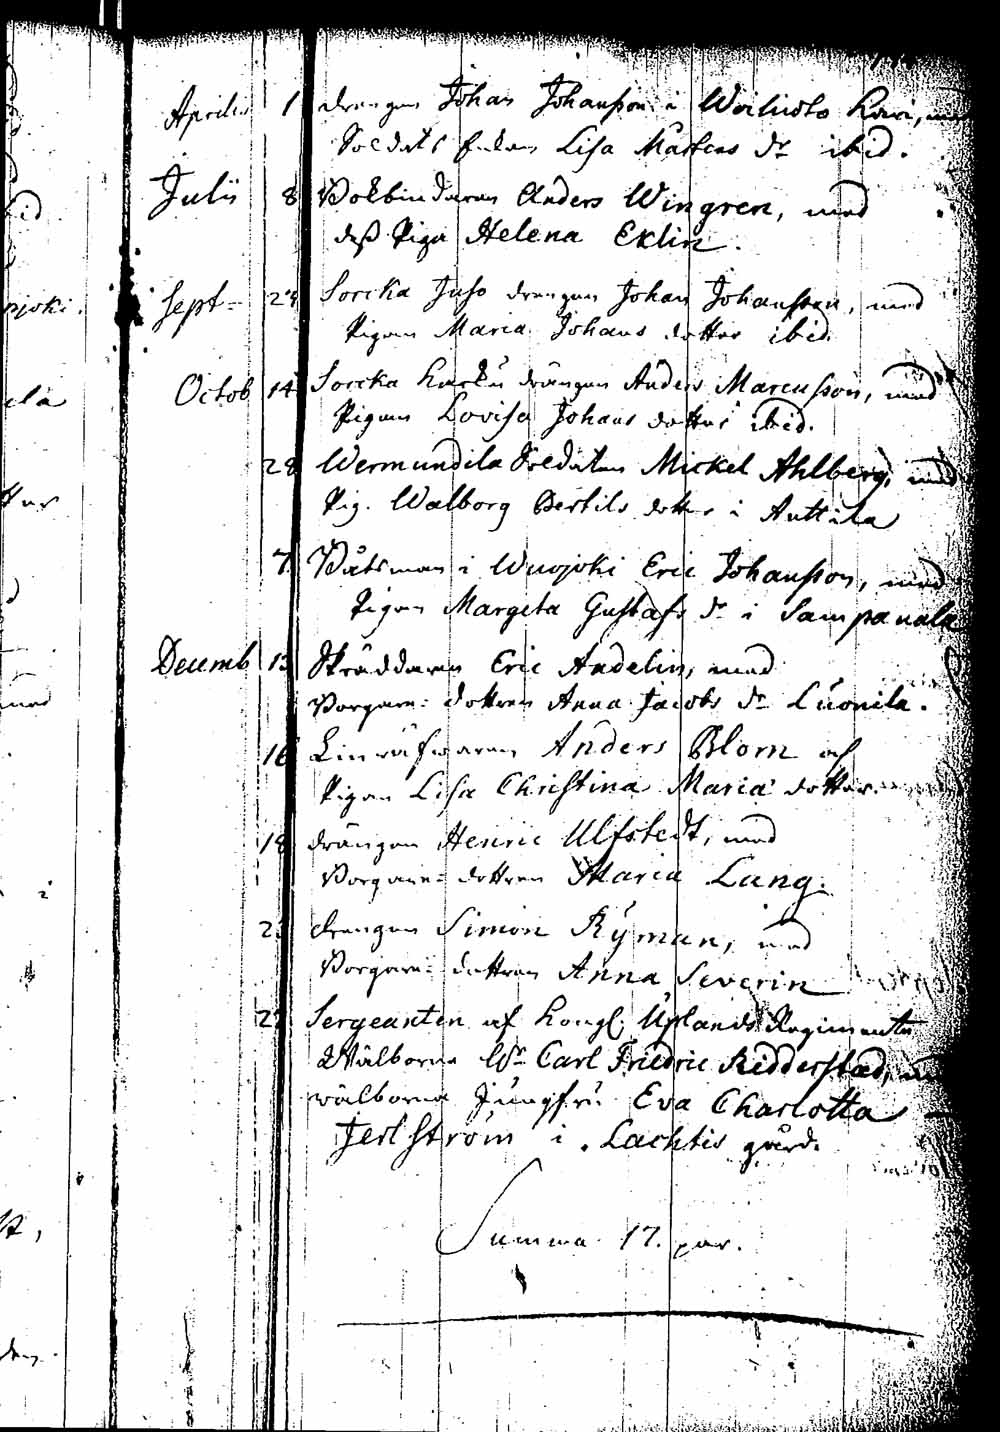 Aprilis 1 drengen Johan Johansson i Woiluoto Kari, med
Soldats Enkan Lisa Mårtens dr ibid.
Julii 8 Bokbindaren Anders Wingren, med
dess Piga Helena Eklin.
Sept 29 Sorcka Juso drengen Johan Johansson, med
Pigan Maria Johans dotter ibid.
Octob 14 Sorcka drängen Anders Marcusson, med
Pigan Lovisa Johans dotter ibid.
28 Wermundila Soldaten Mickel Ahlberg, med
Pig. Walborg Bertils dotter i Anttila
7 Båtsman i Wuojoki Eric Johansson, med
Pigan Margeta Gustafs dr i Sampanala
Decemb 13 Skräddaren Eric Andelin, med
Borgare dottren Anna Jacobs dr Luonila.
16 Linväfwaren Anders Blom och
Pigan Lisa Christina Maria dotter.
18 drängen Henric Ulfstedt, med
Borgare dottren Maria Lang.
drengen Simon Ryman, med
Borgare dottren Anna Severin
Sergeanten af Kongl. Uplands Regimente
Wälborne Hr Carl Friedric Ridderstad, med
wälborna Jungfru Eva Charlotta
Jerlström i Lachtis gård.
Summa 17. par.